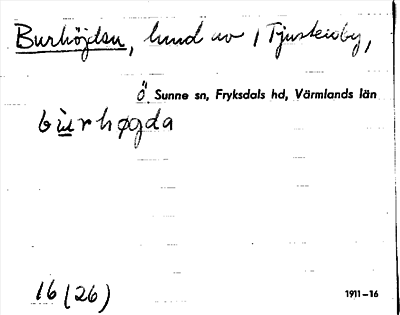 Burhöjden, hund av 1 Tjustersby,
Ö. Sunne sn, Fryksdals hd, Värmlands län
bùrhøgda
16 (26)
1911–16